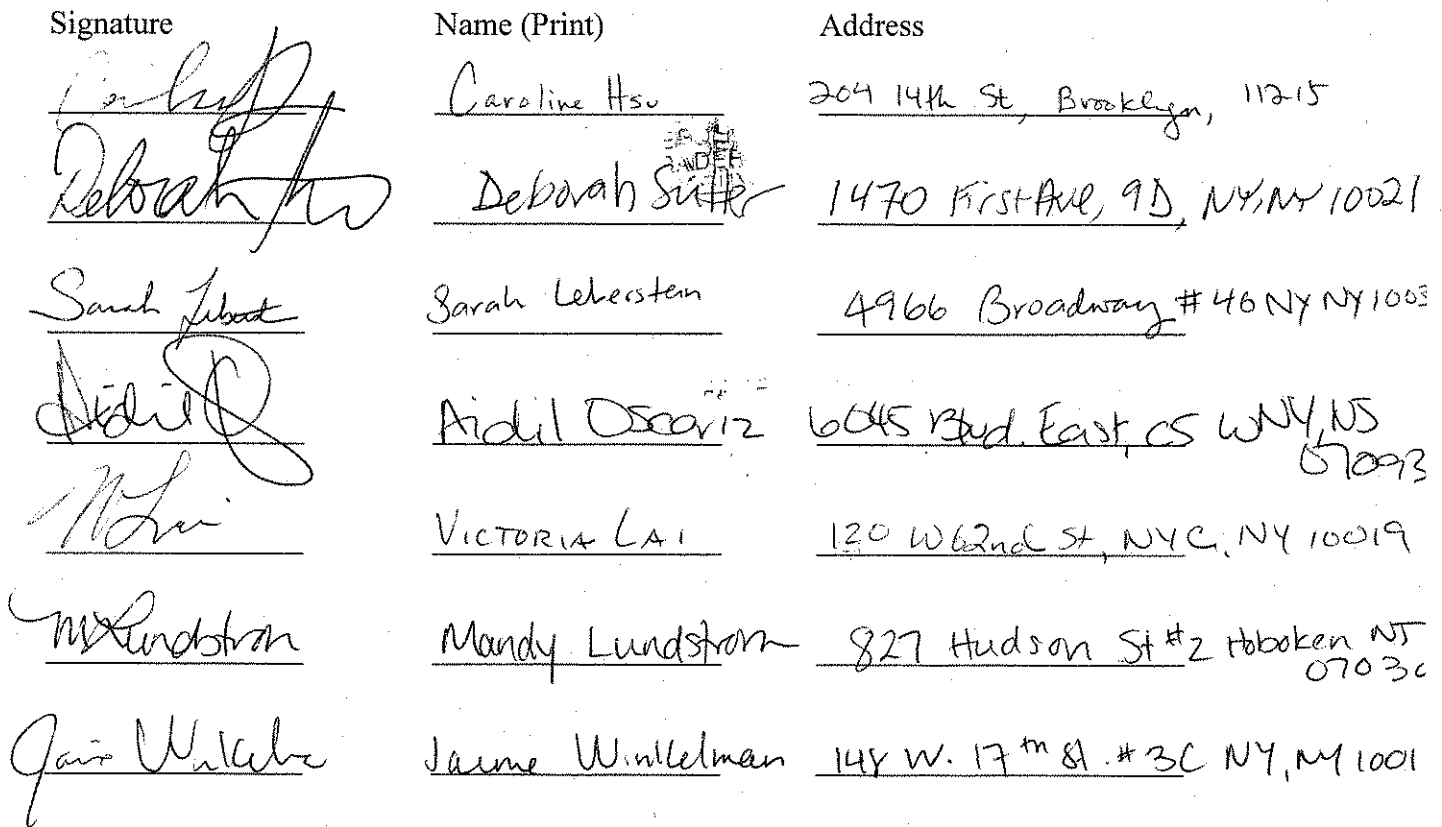 Signature Name (Print) Address
Caroline Hsu 204 14th St, Brooklyn, 11215
Deborah Deborah 1470 First Ave, 9D, NY, NY 10021
Sarah Sarah Leberstein 4966 Broadway #46 NY NY 1003
Aidil Aidil Oscariz 6045 Blvd. East, C5 WNY, NJ
07093
VICTORIA LAI 120 W 62nd St, NYC, NY 10019
M Lundstrom Mandy Lundstrom 827 Hudson St #2 Hoboken NJ
0703
Jaime Winkelman 148 W. 17th St. #3C NY, NY 1001